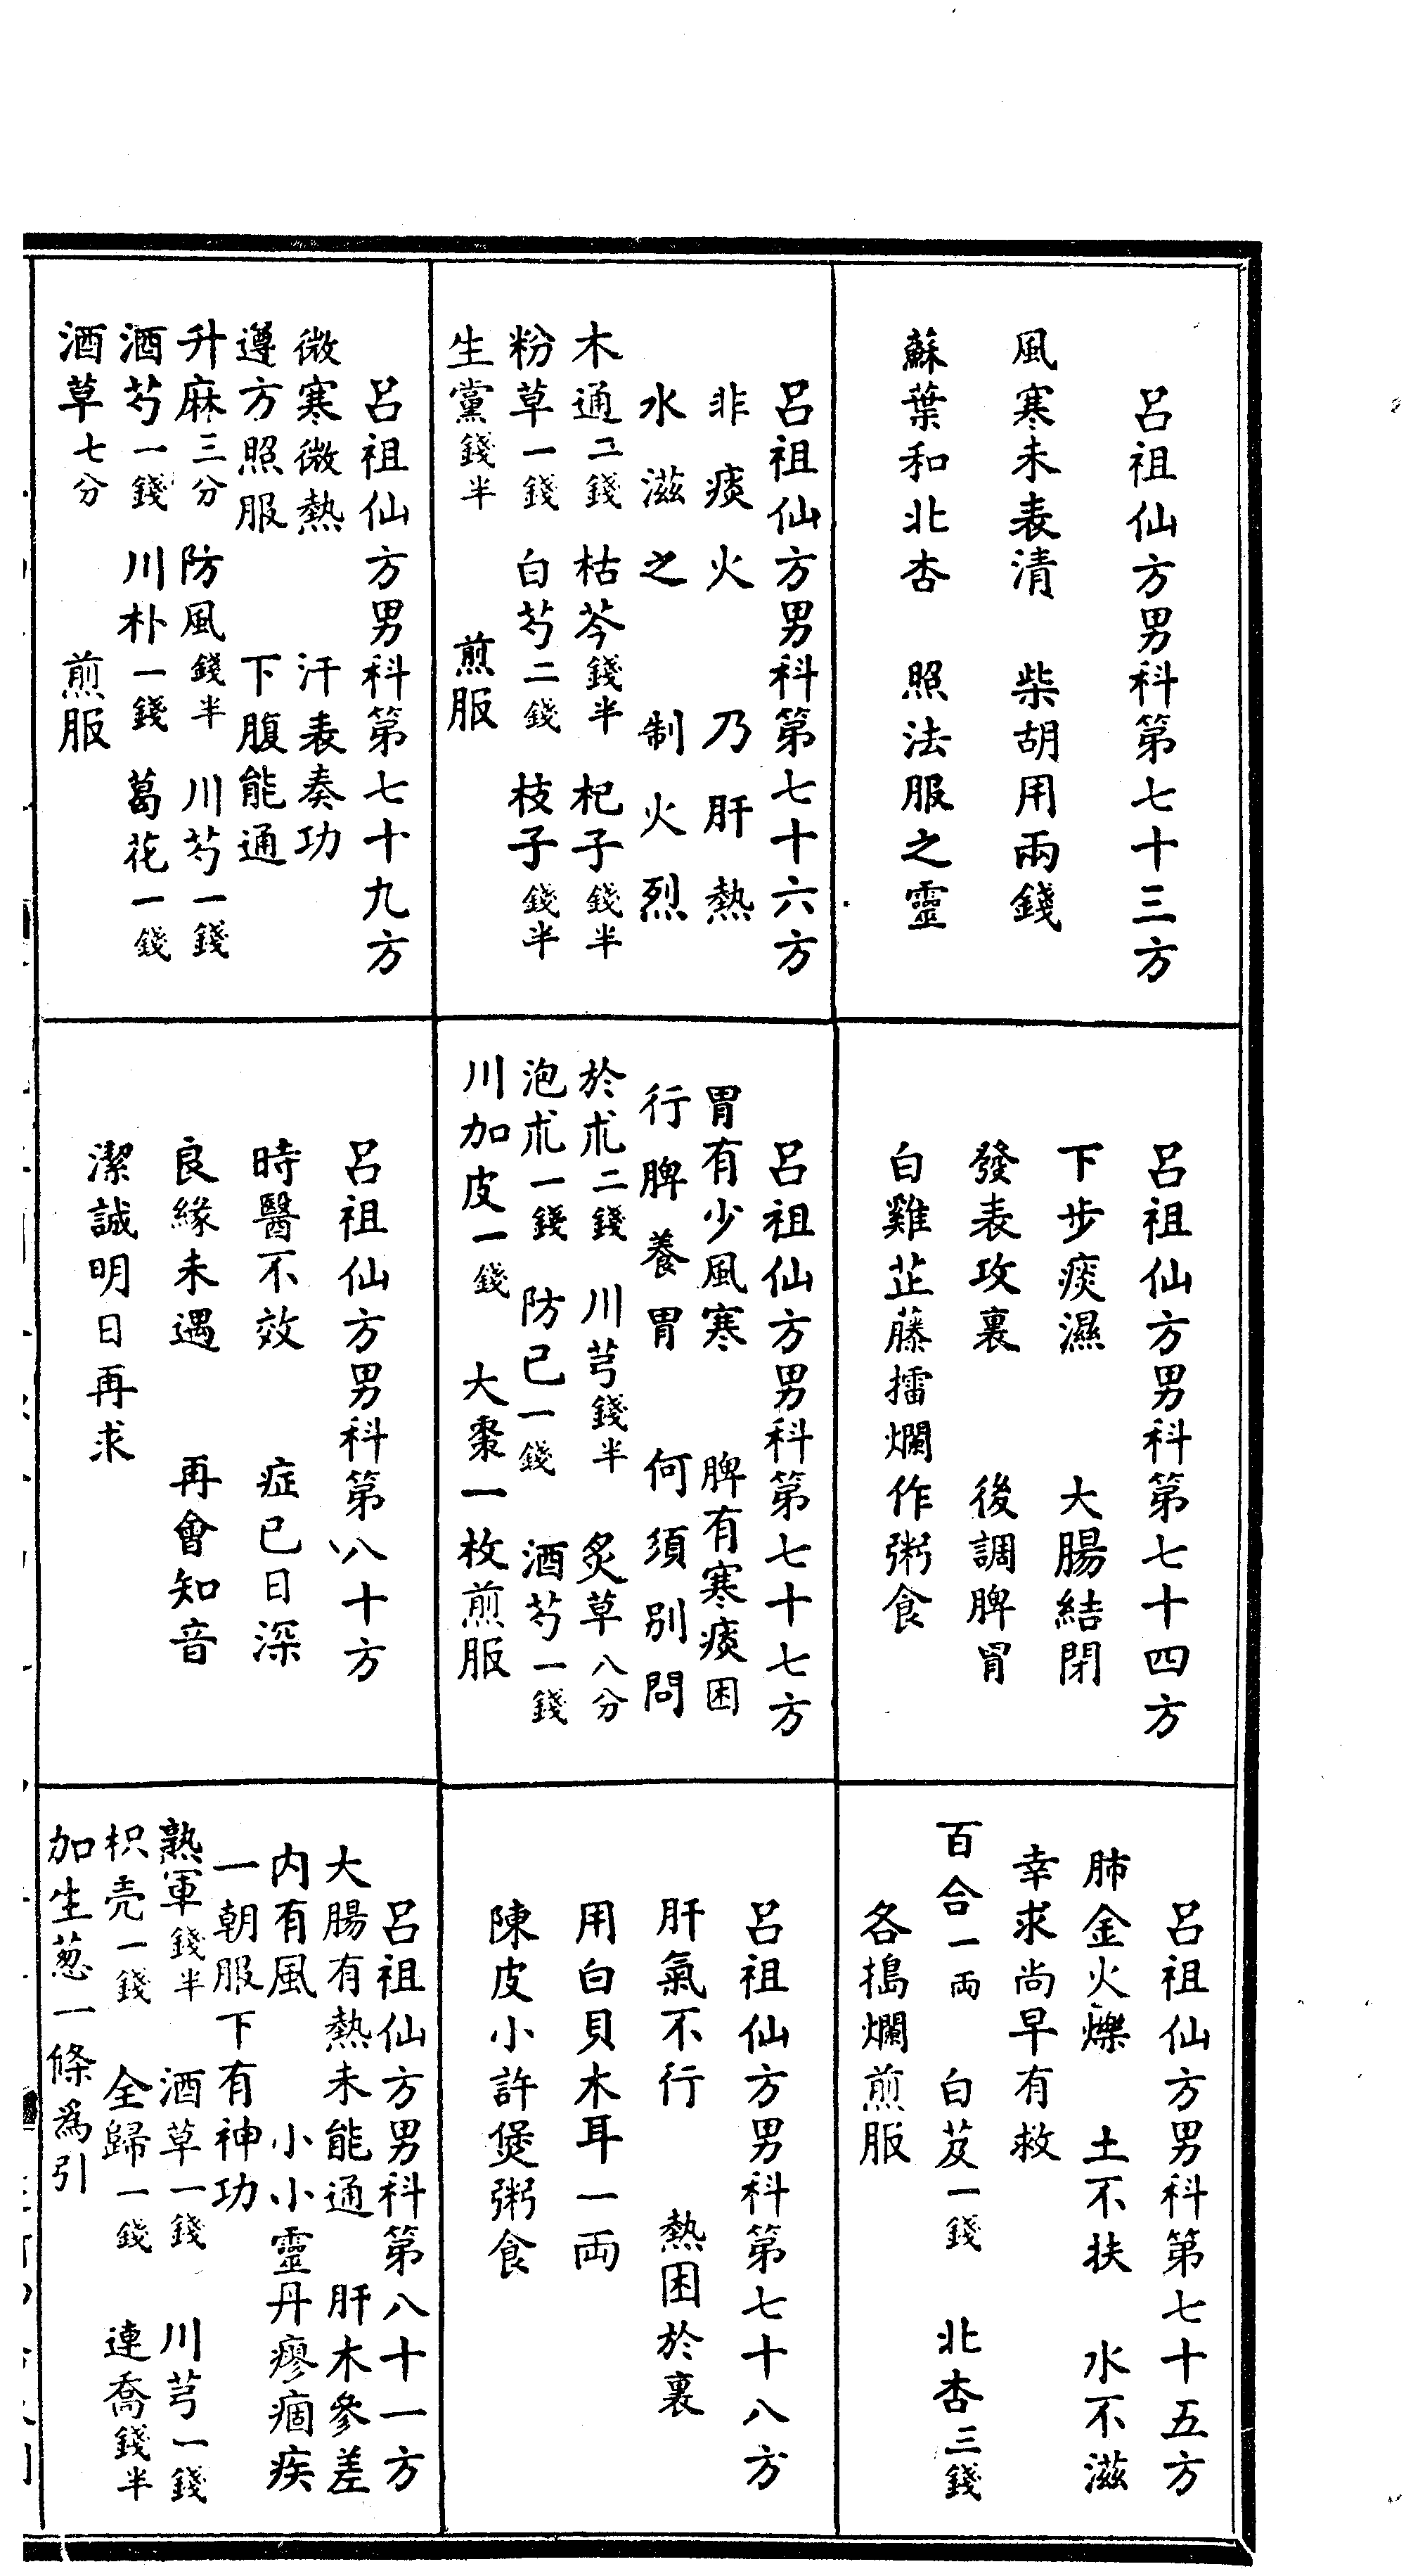 呂祖仙方男科第七十三方
風寒未表清　柴胡用兩錢
蘇葉和北杏　照法服之靈
呂祖仙方男科第七十四方
下步痰濕　大腸結閉
發表攻裏　後調脾胃
白雞芷藤擂爛作粥食
呂祖仙方男科第七十五方
肺金火爍　土不扶　水不滋
幸求尚早有救
百合一両　白芨一錢　北杏三錢
各搗爛煎服
呂祖仙方男科第七十六方
非痰火　乃肝熱
水滋之　制火烈
木通二錢　枯芩錢半　杞子錢半
粉草一錢　白芍二錢　枝子錢半
生黨錢半　煎服
呂祖仙方男科第七十七方
胃有少風寒　脾有寒痰困
行脾養胃　何須別問
於朮二錢　川芎錢半　炙草八分
泡朮一錢　防已一錢　酒芍一錢
川加皮一錢　大棗一枚煎服
呂祖仙方男科第七十八方
肝氣不行　熱困於裏
用白貝木耳一両
陳皮小許煲粥食
呂祖仙方男科第七十九方
微寒微熱　汗表奏功
遵方照服　下腹能通
升麻三分　防風錢半　川芍一錢
酒芍一錢　川朴一錢　葛花一錢
酒草七分　煎服
呂祖仙方男科第八十方
時醫不效　症已日深
良緣未遇　再會知音
潔誠明日再求
呂祖仙方男科第八十一方
大腸有熱未能通　肝木參差
内有風　小小靈丹瘳痼疾
一朝服下有神功
熟軍錢半　酒草一錢　川芎一錢
枳壳一錢　全歸一錢　連喬錢半
加生葱一條為引